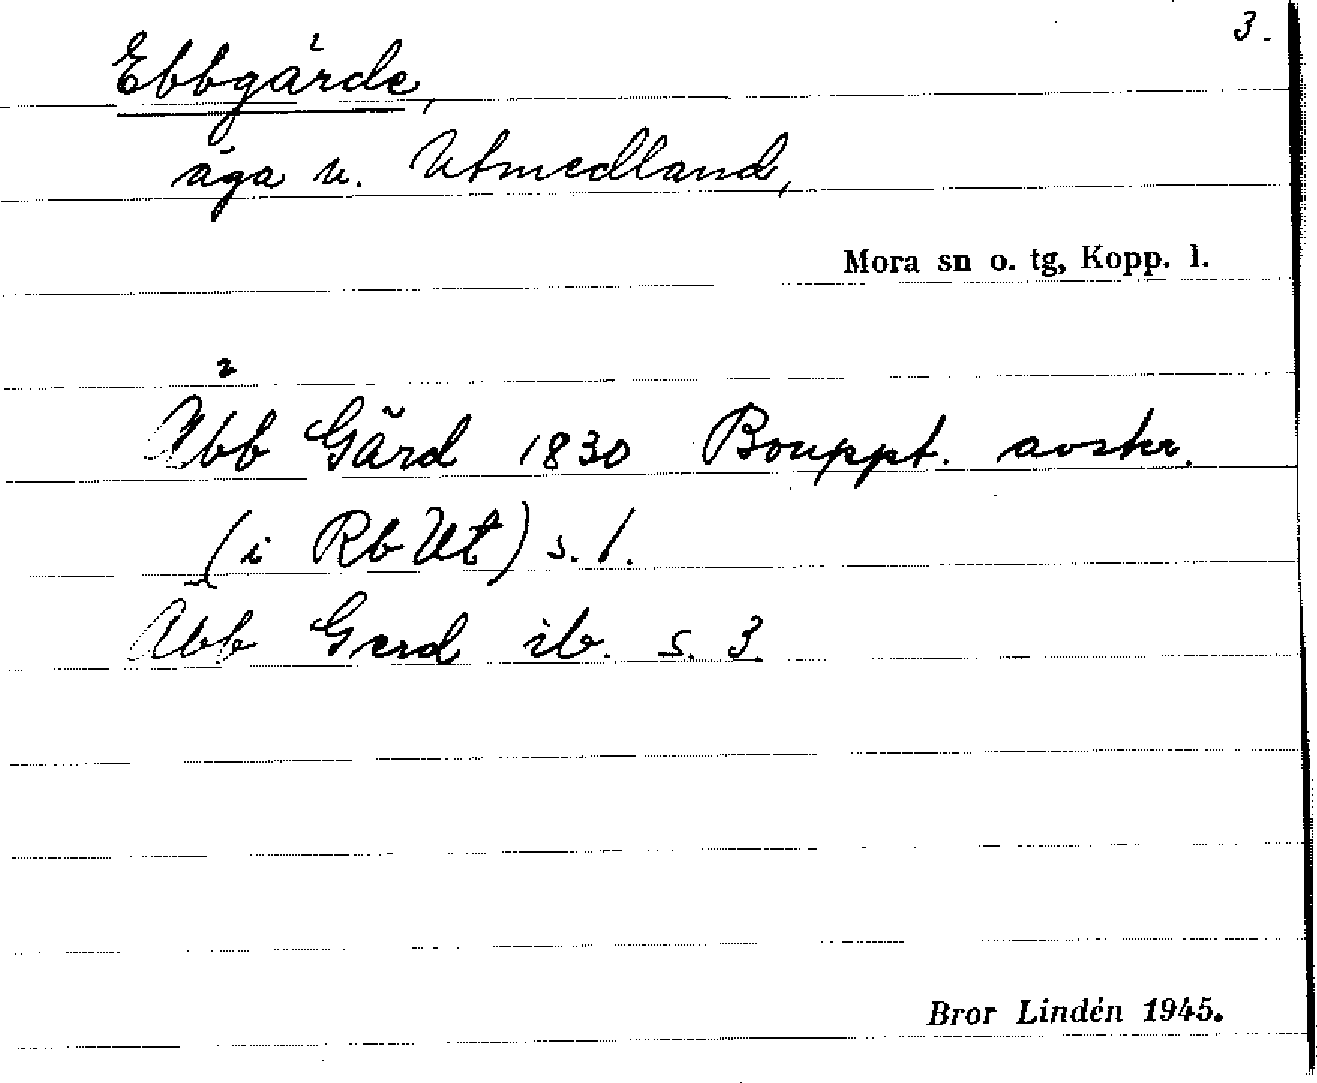 3.
Ebbgärde,
äga v. Utmedland,
Mora sn o. tg, Kopp. l.
Äbb Gärd 1830 Bouppt. avskr.
(i Rb Ut) s. 1.
Äbb Gerd ib. s. 3
Bror Lindén 1945.